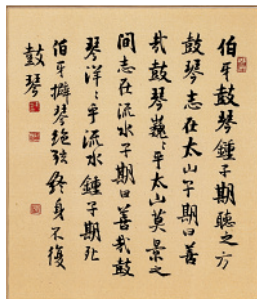 伯牙鼓琴鍾子期聽之方
鼓琴志在太山子期曰善
哉鼓琴巍〻乎太山莫景之
間志在流水子期曰善哉鼓
琴洋〻乎流水鍾子期死
伯牙擗琴绝弦终身不復
鼓琴